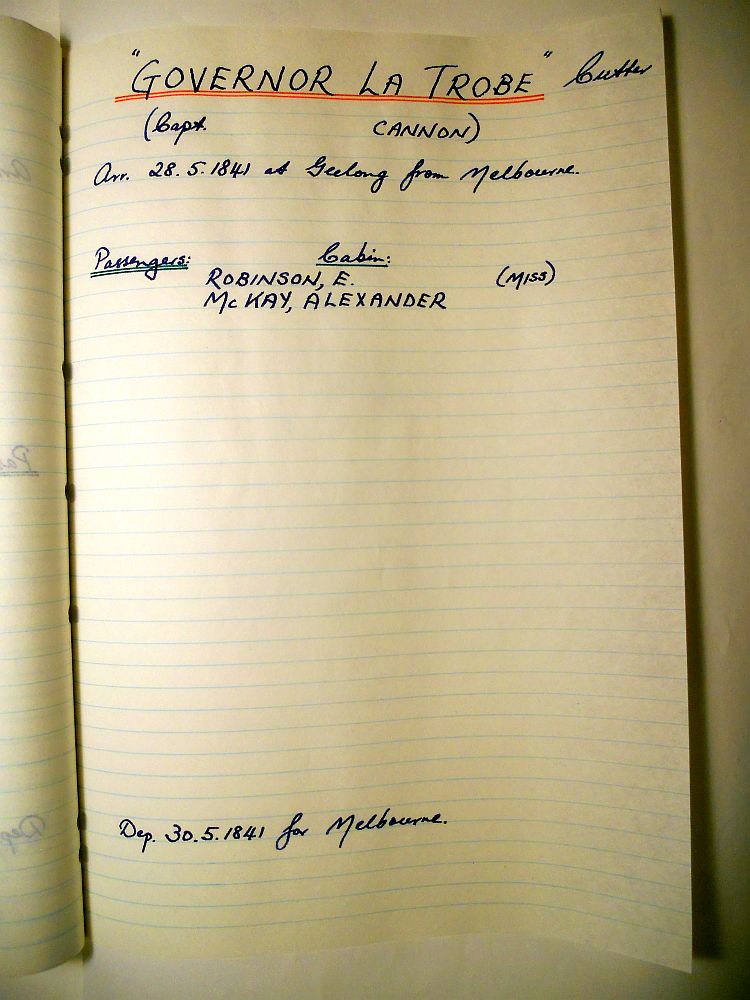 "GOVERNOR LA TROBE" Cutter
(Capt. CANNON)
Arr. 28.5.1841 at Geelong from Melbourne.
Passengers: Cabin:
ROBINSON, E. (MISS)
McKAY, ALEXANDER
Dep. 30.5.1841 for Melbourne.